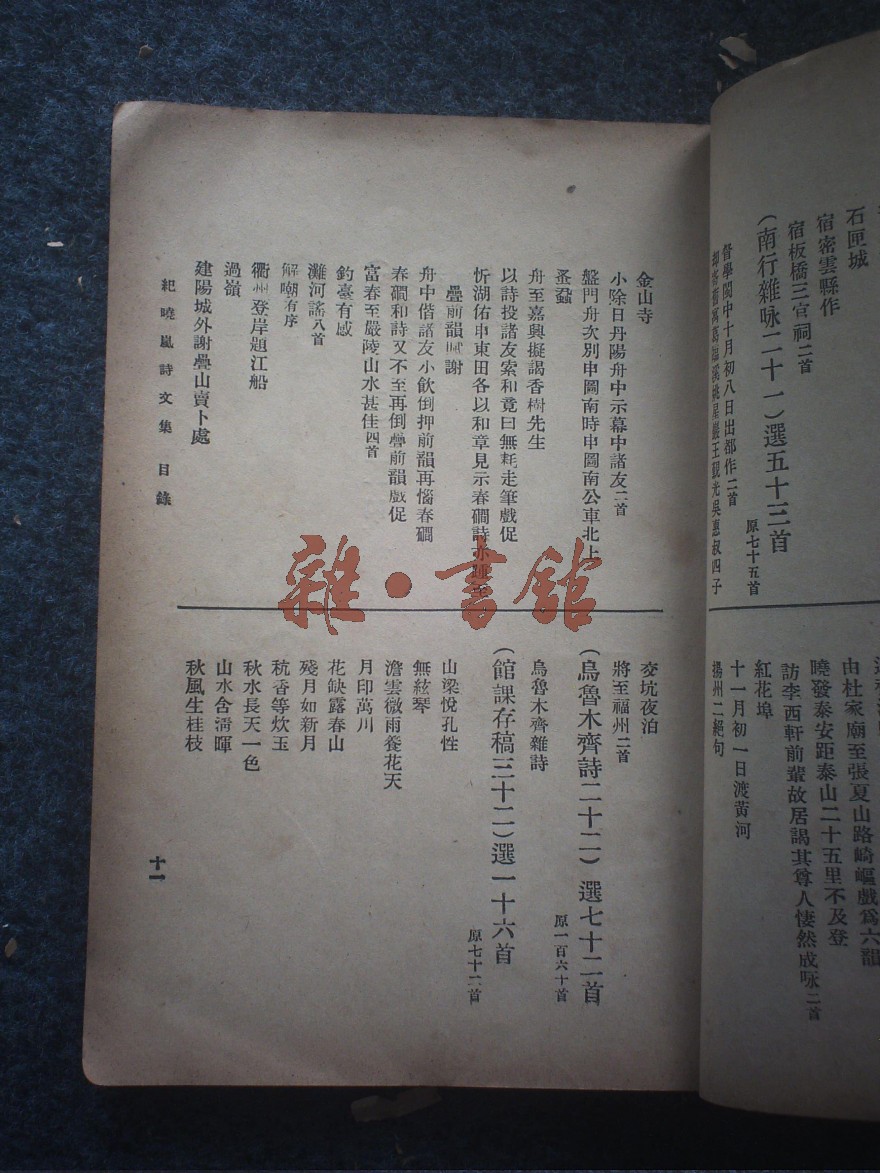 石匣城
宿密雲縣作
宿板橋三官祠二首
(南行雜咏二十一)選五十三首
原七十五首
督學閩中十月初八日出都作二首
由杜家廟至張夏山路崎嶇戲爲六韻
曉發泰安距泰山二十五里不及登
訪李西軒前輩故居謁其尊人悽然成咏二首
紅花埠
十一月初一日渡黄河
揚州二絕句
金山寺
小除日丹陽舟中示幕中諸友二首
盤門舟次別申圖南時申圖南公車北上
蚤蝨
舟至嘉興擬謁香樹先生
以詩投諸友索和竟曰無耗走筆戲促
忻湖佑申東田各以和章見示春磵詩亦
疊前韻
謝
舟中偕諸友小飲倒押前韻再惱春磵
春磵和詩又不至再倒疊前韻戲促
富春至嚴陵山水甚佳四首
釣臺有感
灘河謠八首
解嘲有序
衢州登岸題江船
過嶺
建陽城外謝疊山賣卜處
紀曉嵐詩文集 目錄
坑夜泊
將至福州二首
(烏魯木齊詩二十二)選七十二首
原一百六十首
烏魯木齊雜詩
(館課存稿三十二)選一十六首
原七十二首
山梁悅孔性
無絃琴
澹雲微雨養花天
月印萬川
花缺露春山
殘月如新月
秔香等炊玉
秋水長天一色
山水含清暉
秋風生桂枝
十一
雜·書館